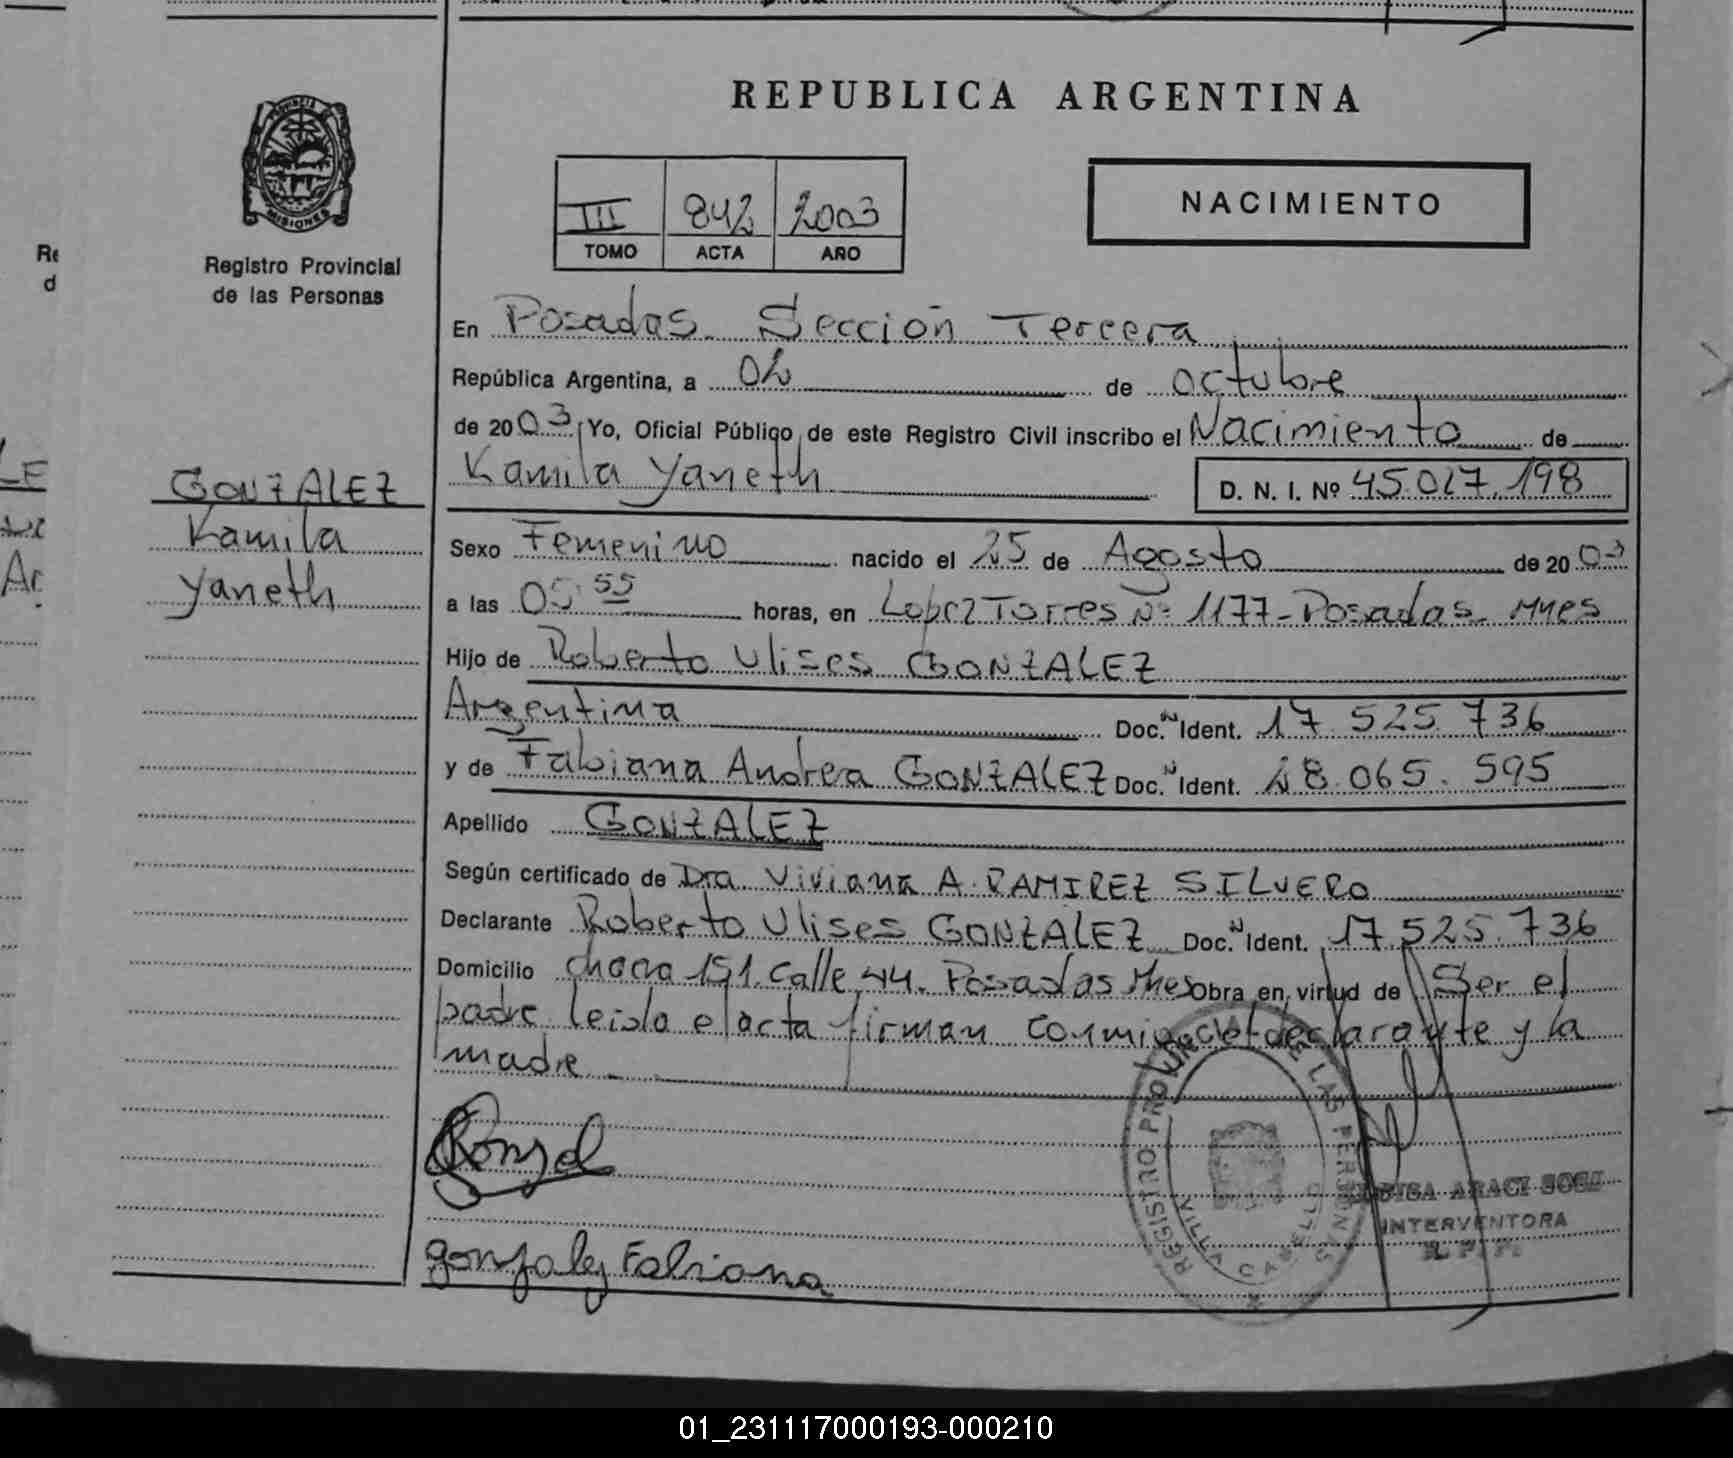 REPUBLICA ARGENTINA
PROVINCIA
MISIONES
Registro Provincial
de las Personas
III 842 2003
TOMO ACTA AÑO
NACIMIENTO
En Posadas Sección Tercera
República Argentina, a 02 de octubre
de 2003 Yo, Oficial Público de este Registro Civil inscribo el Nacimiento de
Kamila Yaneth D. N. I. Nº 45.027.198
GONZALEZ
Kamila
Yaneth
Sexo Femenino nacido el 25 de Agosto de 2003
a las 05:55 horas, en Lopez Torres Nº 1177-Posadas Mnes
Hijo de Roberto Ulises GONZALEZ
Argentina Doc. Ident. 17.525.736
y de Fabiana Andrea GONZALEZ Doc. Ident. 28.065.595
Apellido GONZALEZ
Según certificado de Dra Viviana A. RAMIREZ SILVERO
Declarante Roberto Ulises GONZALEZ Doc. Ident. 17.525.736
Domicilio chacra 151. calle 44. Posadas Mnes Obra en virtud de Ser el
padre leida el acta firman conmigo el declarante y la
madre
gonzalez Fabiana
REGISTRO PROVINCIAL DE LAS PERSONAS
VILLA CABELLO
ARACI SOSA
INTERVENTORA
01_231117000193-000210